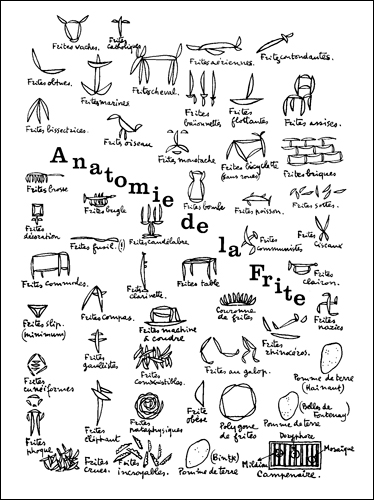 Frites vaches.
Frites catholiques
Frites aériennes.
Frites contondantes.
Frites obtues.
Frites marines
Frites cheval.
Frites baïonnettes
Frites flottantes
Frites assises.
Frites bissectrices.
Frites oiseau.
Frites moustache
Frites bicyclette
(sans roues)
Frites briques
Anatomie de la Frite
Frites brosse
Frites bugle
Frites bombe
Frites poisson.
Frites sottes.
Frites
décoration
Frites fusil.
Frites candélabre
Frites
communistes
Frites
Ciseaux
Frites commodes.
Frites
clarinette.
Frites table
Frites
clairon.
Frites slip.
(minimum)
Frites compas.
Frites machine
à coudre
Couronne
de frites
Frites
nazies
Frites
gaullistes
Frites
rhinocéros.
Frites
cunéiformes
Frites
Combustibles.
Frites au galop.
Pomme de terre
(Hainaut)
Frites
éléphant
Frites
pataphysiques
Frite
obèse
Polygone
de frites
(Belles de
Fontenay)
Pomme de terre
Frites
phoque
Frites
crues.
Frites
incroyables.
(Bintje)
Pomme de terre
Doryphore
Mildiou
Mosaïque
Campenaire.